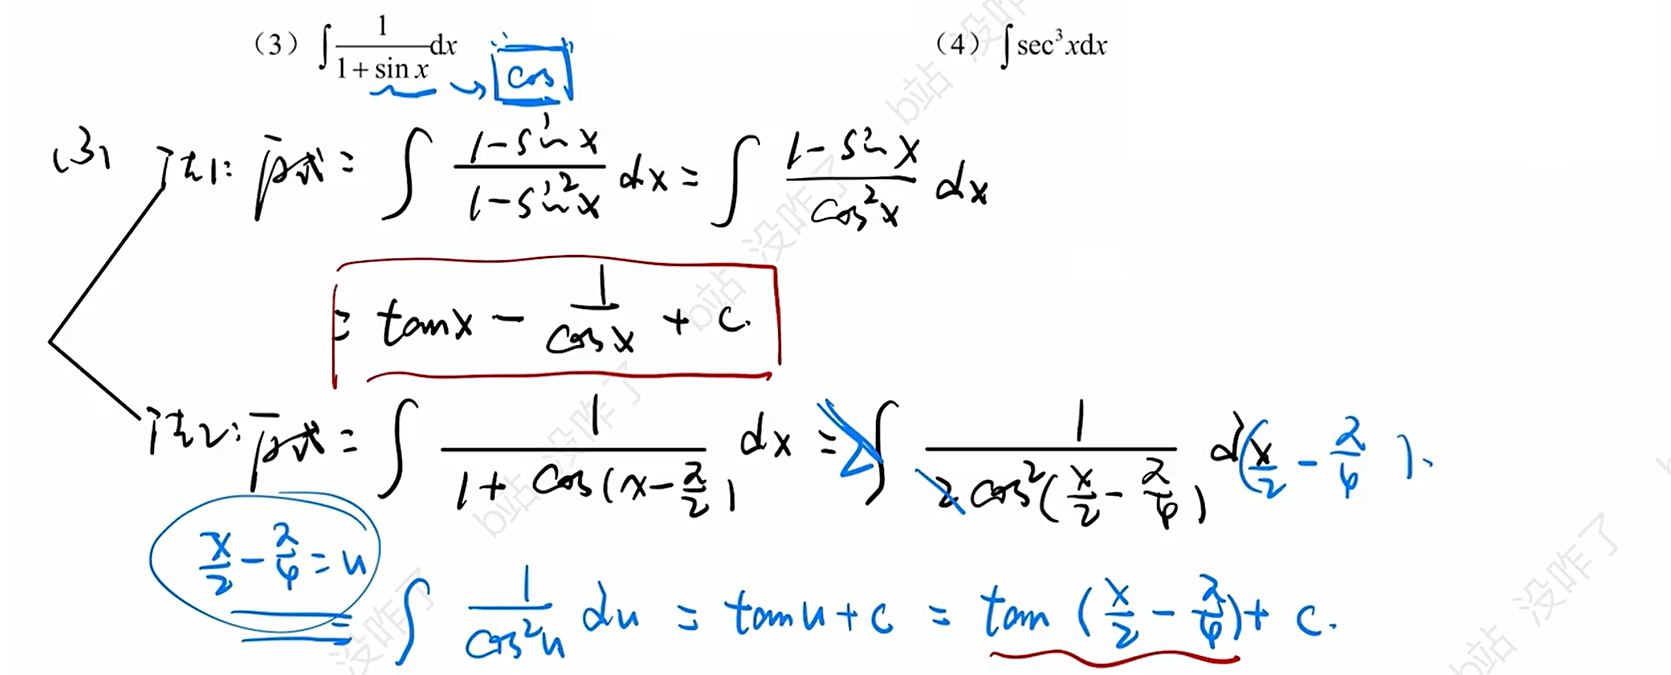 （3）∫ 1/(1+sin x) dx → cos （4）∫ sec³xdx
(3) 法1: 原式 = ∫ (1-sinx)/(1-sin²x) dx = ∫ (1-sinx)/(cos²x) dx
= tanx - 1/cosx + C.
法2: 原式 = ∫ 1/(1+cos(x-π/2)) dx = 2∫ 1/(2cos²(x/2-π/4)) d(x/2-π/4).
x/2-π/4=u
= ∫ 1/cos²u du = tanu+C = tan(x/2-π/4)+C.
b站 没咋了
b站 没咋了
b站 没咋了
没咋了
b站 没咋了